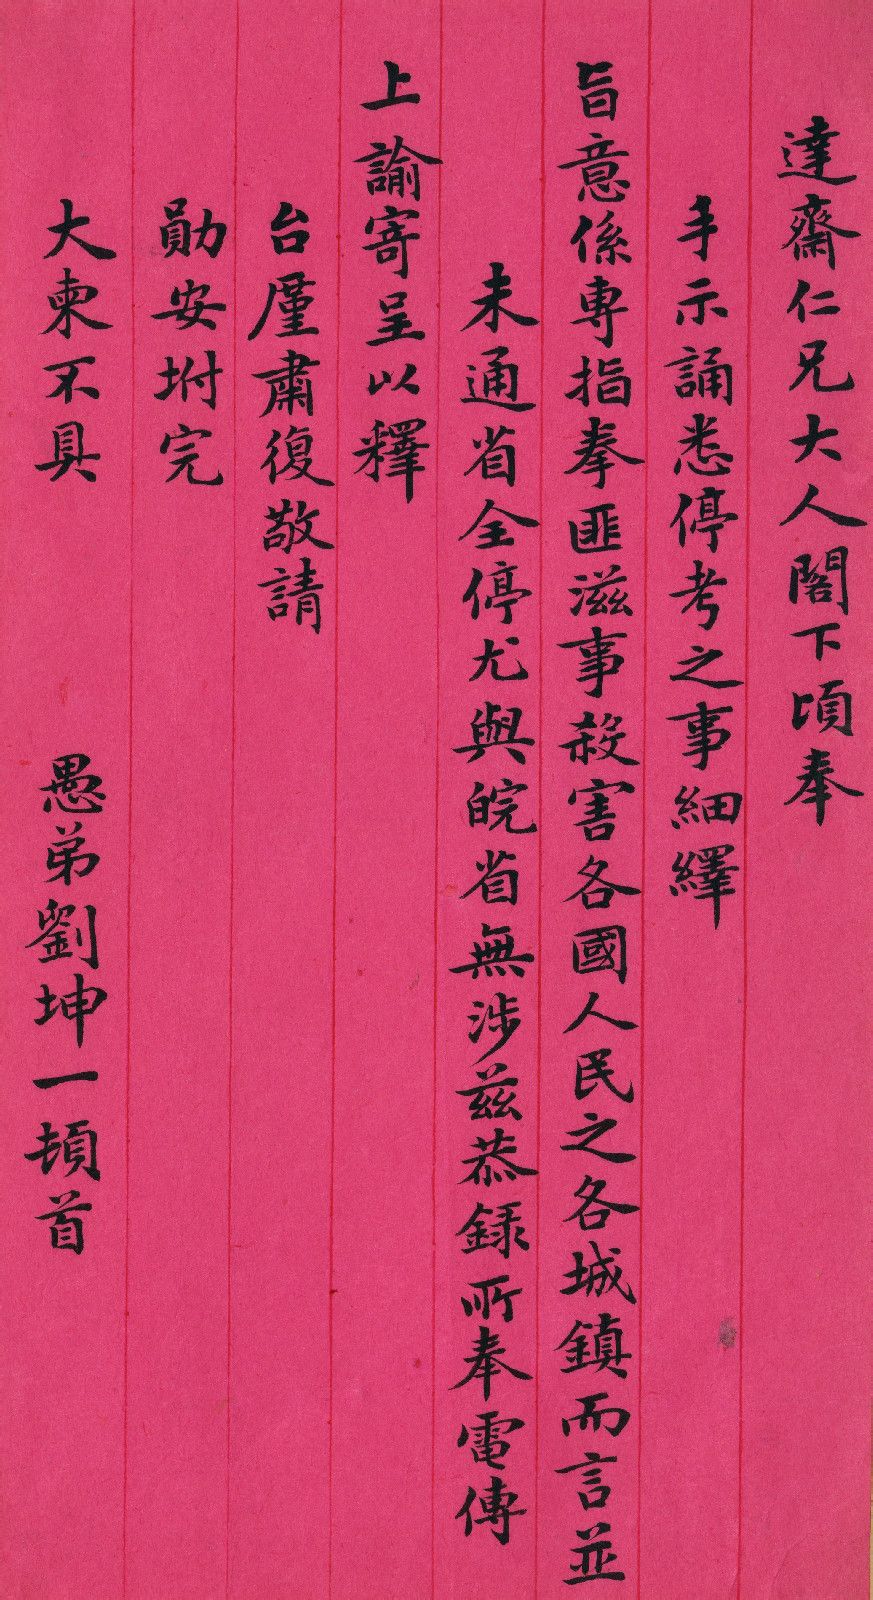 達齋仁兄大人閣下頃奉
手示誦悉停考之事細繹
旨意係專指拳匪滋事殺害各國人民之各城鎮而言並
未通省全停尤與皖省無涉茲恭録所奉電傳
上諭寄呈以釋
台厪肅復敬請
勛安坿完
大柬不具
愚弟劉坤一頓首